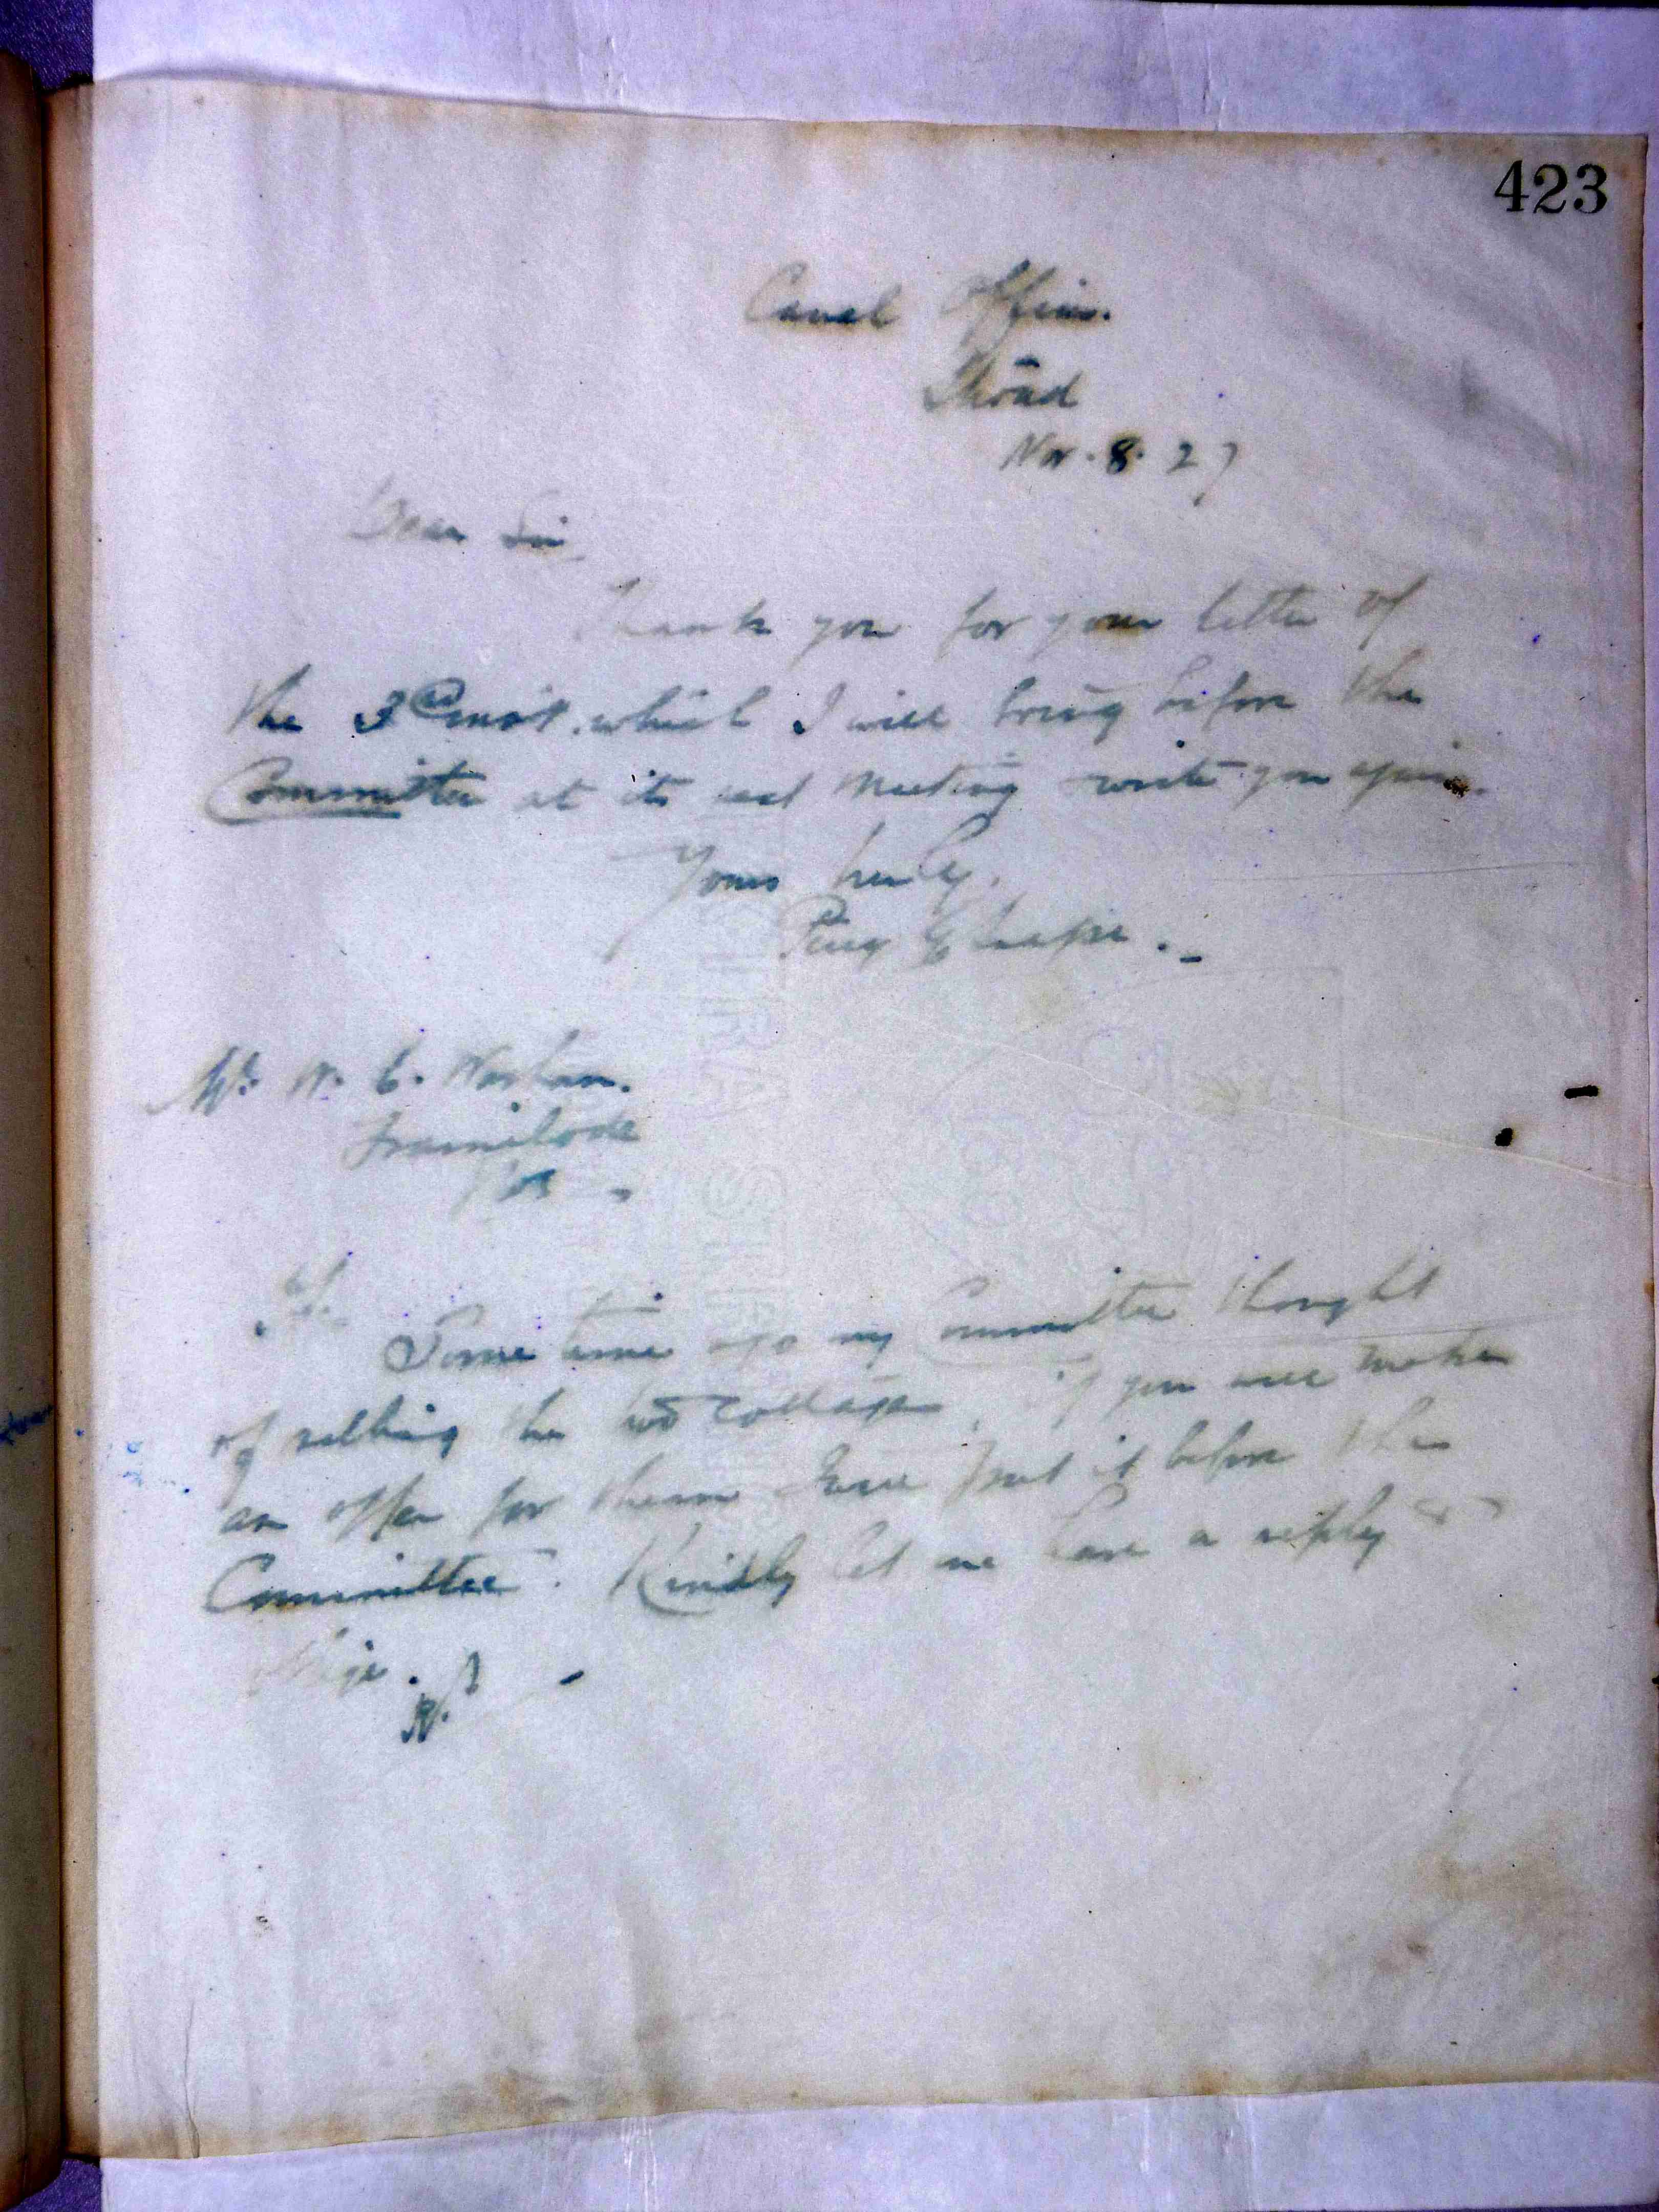 423
Canal Office.
Stroud
Nov. 8. 27
Dear Sir
Thank you for your letter of
the 3rd inst. which I will bring before the
Committee at its next meeting & write you again.
Yours truly,
Mr. W. E.
Framilode
P.S.
Some time ago my Committee thought
of selling the two cottages. If you will make
an offer for them I will put it before the
Committee. Kindly let me have a reply